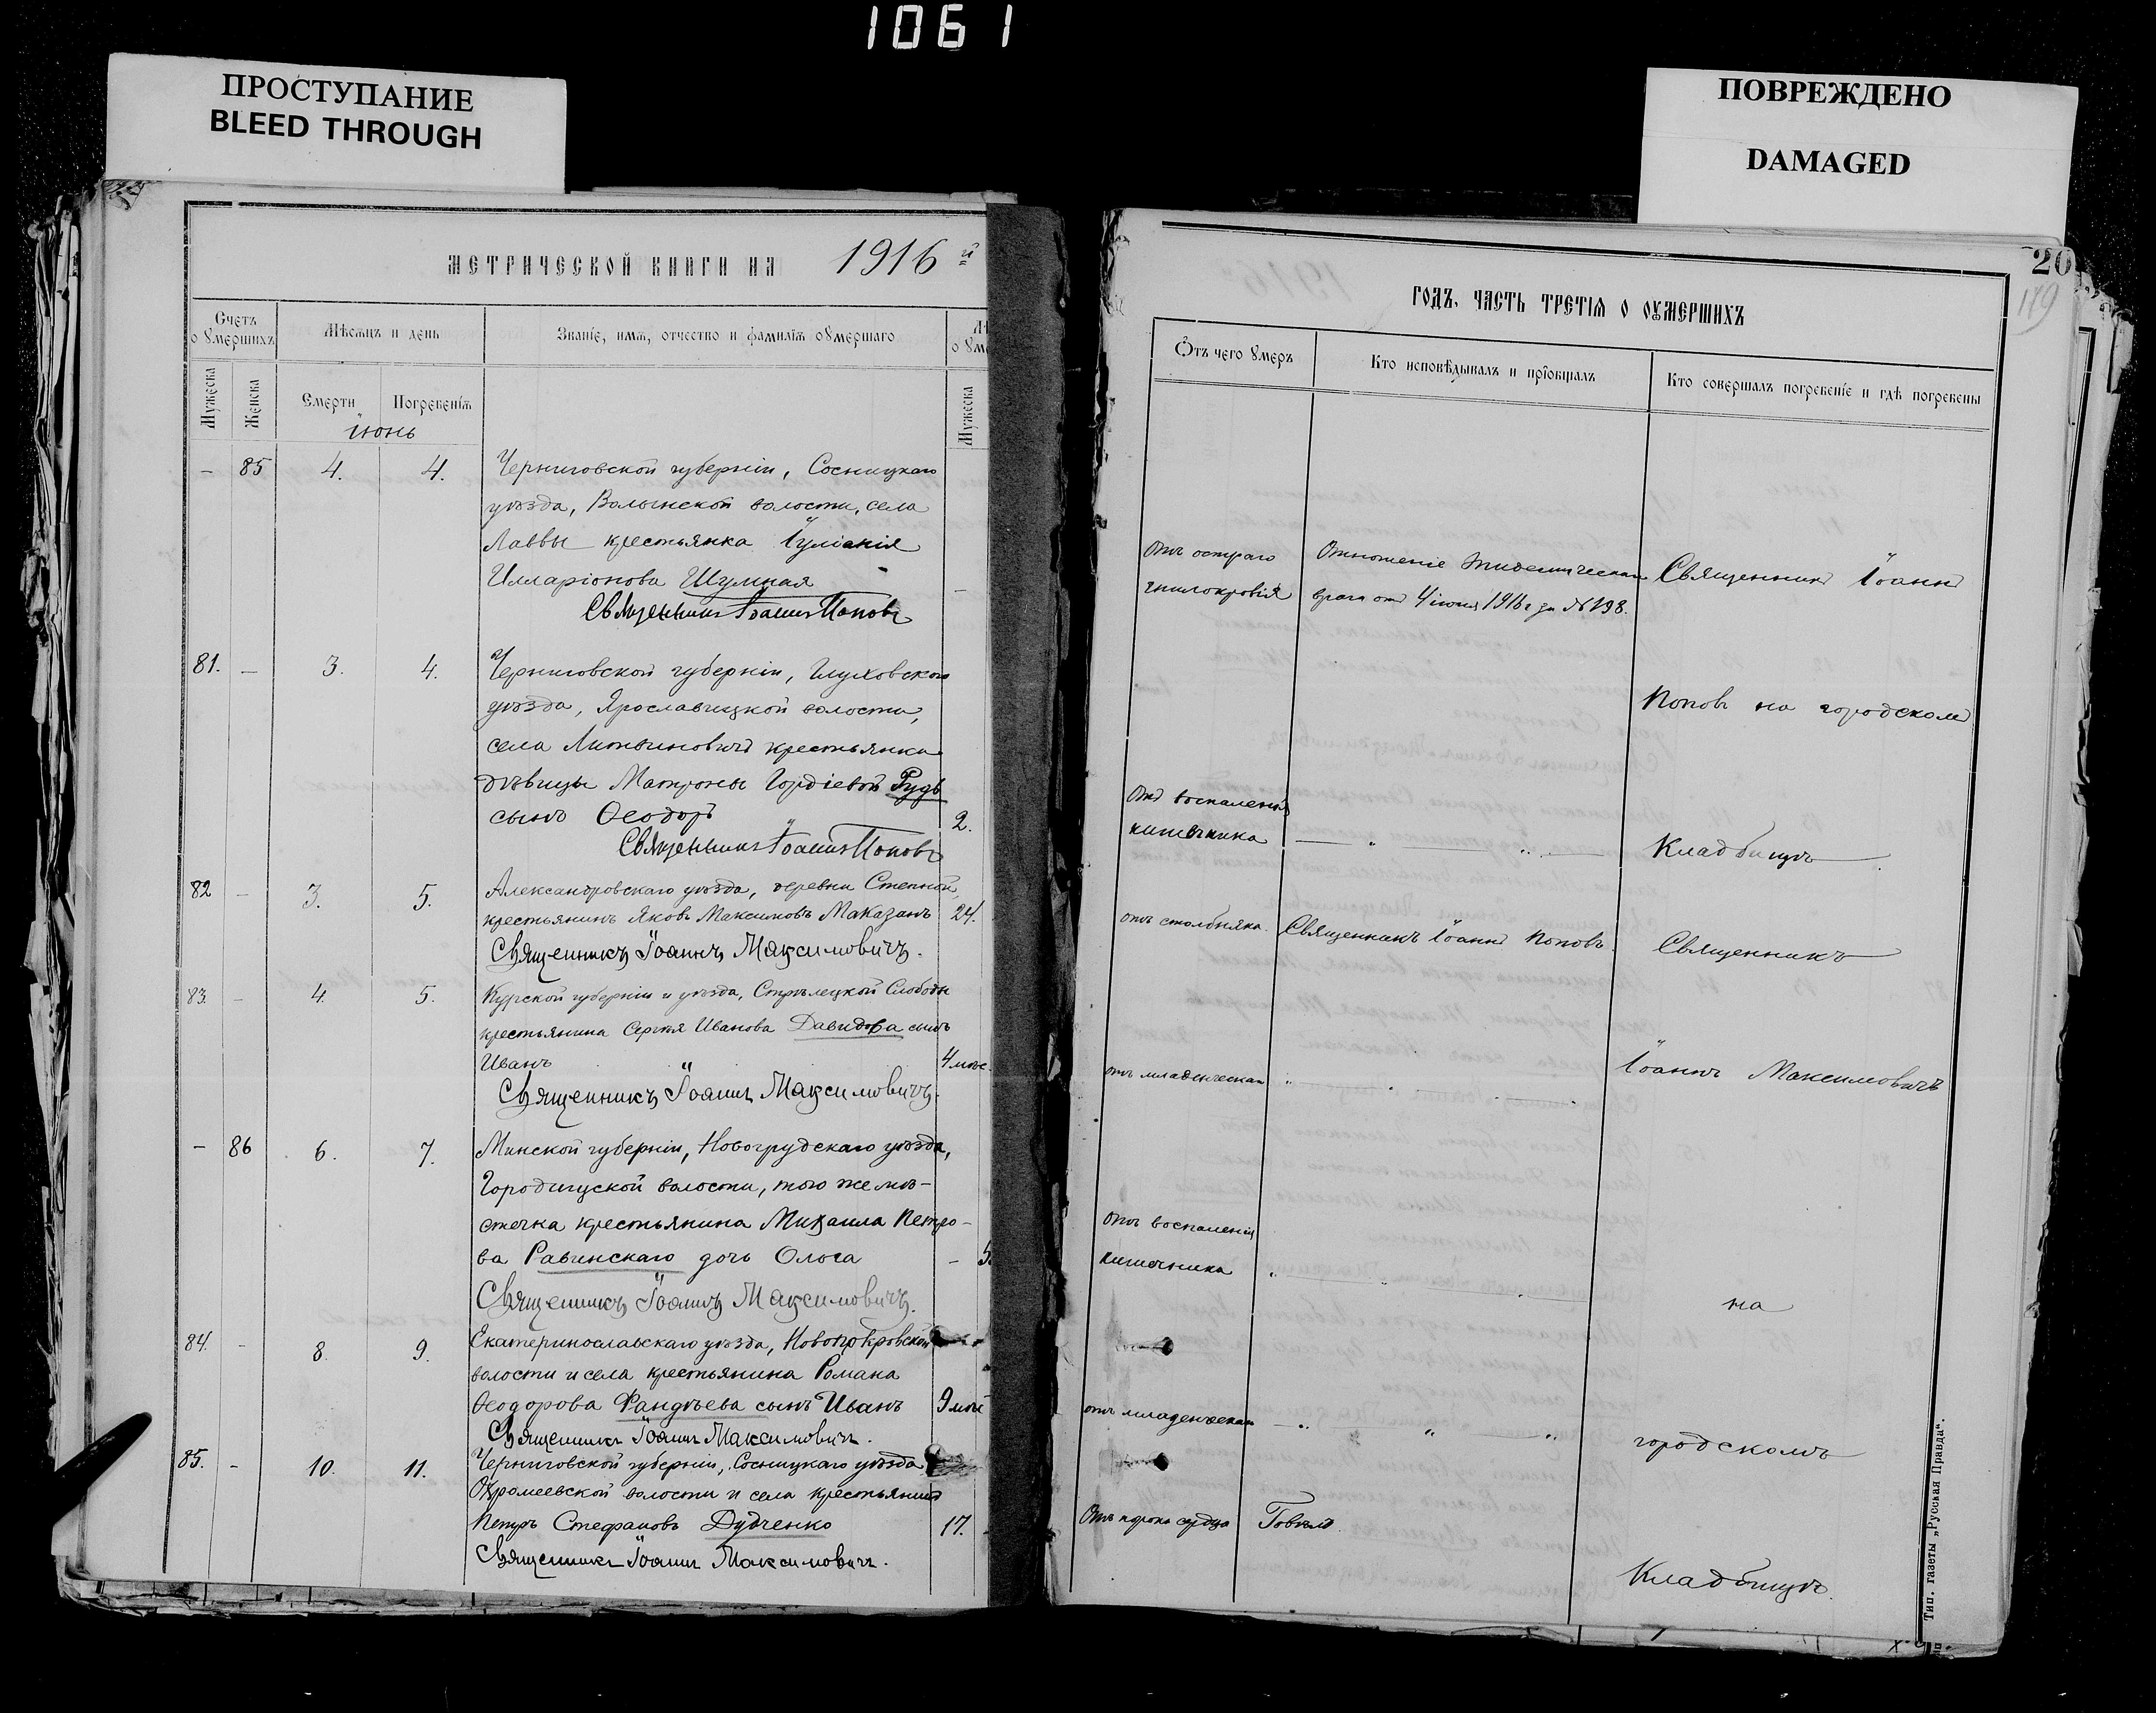 1061
ПРОСТУПАНИЕ
BLEED THROUGH
ПОВРЕЖДЕНО
DAMAGED
МЕТРИЧЕСКОЙ КНИГИ НА 1916й
Счетъ оумершихъ
Мѣсяцъ и день
Званіе, имѧ, отчество и фамиліѧ оумершаго
Мужеска
Женска
Смерти
Погребеніѧ
Мужеска
іюнь
– 85 4. 4. Черниговской губерніи, Сосницкаго
уѣзда, Волынской волости, села
Лаввы крестьянка Іуліанія
Илларіонова Шумная
Священникъ Іоаннъ Поповъ
81. – 3. 4. Черниговской губерніи, Глуховского
уѣзда, Ярославецкой волости,
села Литвиновичъ крестьянки
дѣвицы Матроны Гордіевой Рудь
сынъ Ѳеодоръ 2.
Священникъ Іоаннъ Поповъ
82 – 3. 5. Александровскаго уѣзда, деревни Степной
крестьянинъ Яковъ Максимовъ Маказанъ 24.
Священникъ Іоаннъ Максимовичъ.
83. – 4. 5. Курской губерніи и уѣзда, Стрѣлецкой Слободы
крестьянина Сергѣя Иванова Давидова сынъ
Иванъ 4 мѣс.
Священникъ Іоаннъ Максимовичъ.
– 86 6. 7. Минской губерніи, Новогрудскаго уѣзда,
Городищской волости, того же мѣ-
стечка крестьянина Михаила Петро-
ва Равинскаго дочь Ольга – 5.
Священникъ Іоаннъ Максимовичъ.
84. – 8. 9. Екатеринославскаго уѣзда, Новопокровской
волости и села крестьянина Романа
Ѳеодорова Фандѣева сынъ Иванъ 9 мѣс
Священникъ Іоаннъ Максимовичъ.
85. – 10. 11. Черниговской губерніи, Сосницкаго уѣзда
волости и села крестьянинъ
Петръ Стефановъ Дудченко 17.
Священникъ Іоаннъ Максимовичъ.
20
119
ГОДЪ, ЧАСТЬ ТРЕТІѦ О ОУМЕРШИХЪ
Отъ чего умеръ
Кто исповѣдывалъ и пріобщалъ
Кто совершалъ погребеніе и гдѣ погребены
Отъ остраго Отношеніе Эпидемическаго Священникъ Іоаннъ
гнилокровія врача отъ 4 іюня 1916 г за № 198.
Поповъ на городскомъ
Отъ воспаленія
кишечника — " — " — Кладбищѣ
отъ столбняка. Священникъ Іоаннъ Поповъ. Священникъ
отъ младенческая " Іоаннъ Максимовичъ
Отъ воспаленія
кишечника "
на
отъ младенческая — " " — " городскомъ
Отъ порока сердца Говѣлъ.
Кладбищѣ.
Тип. газеты „Русская Правда“.